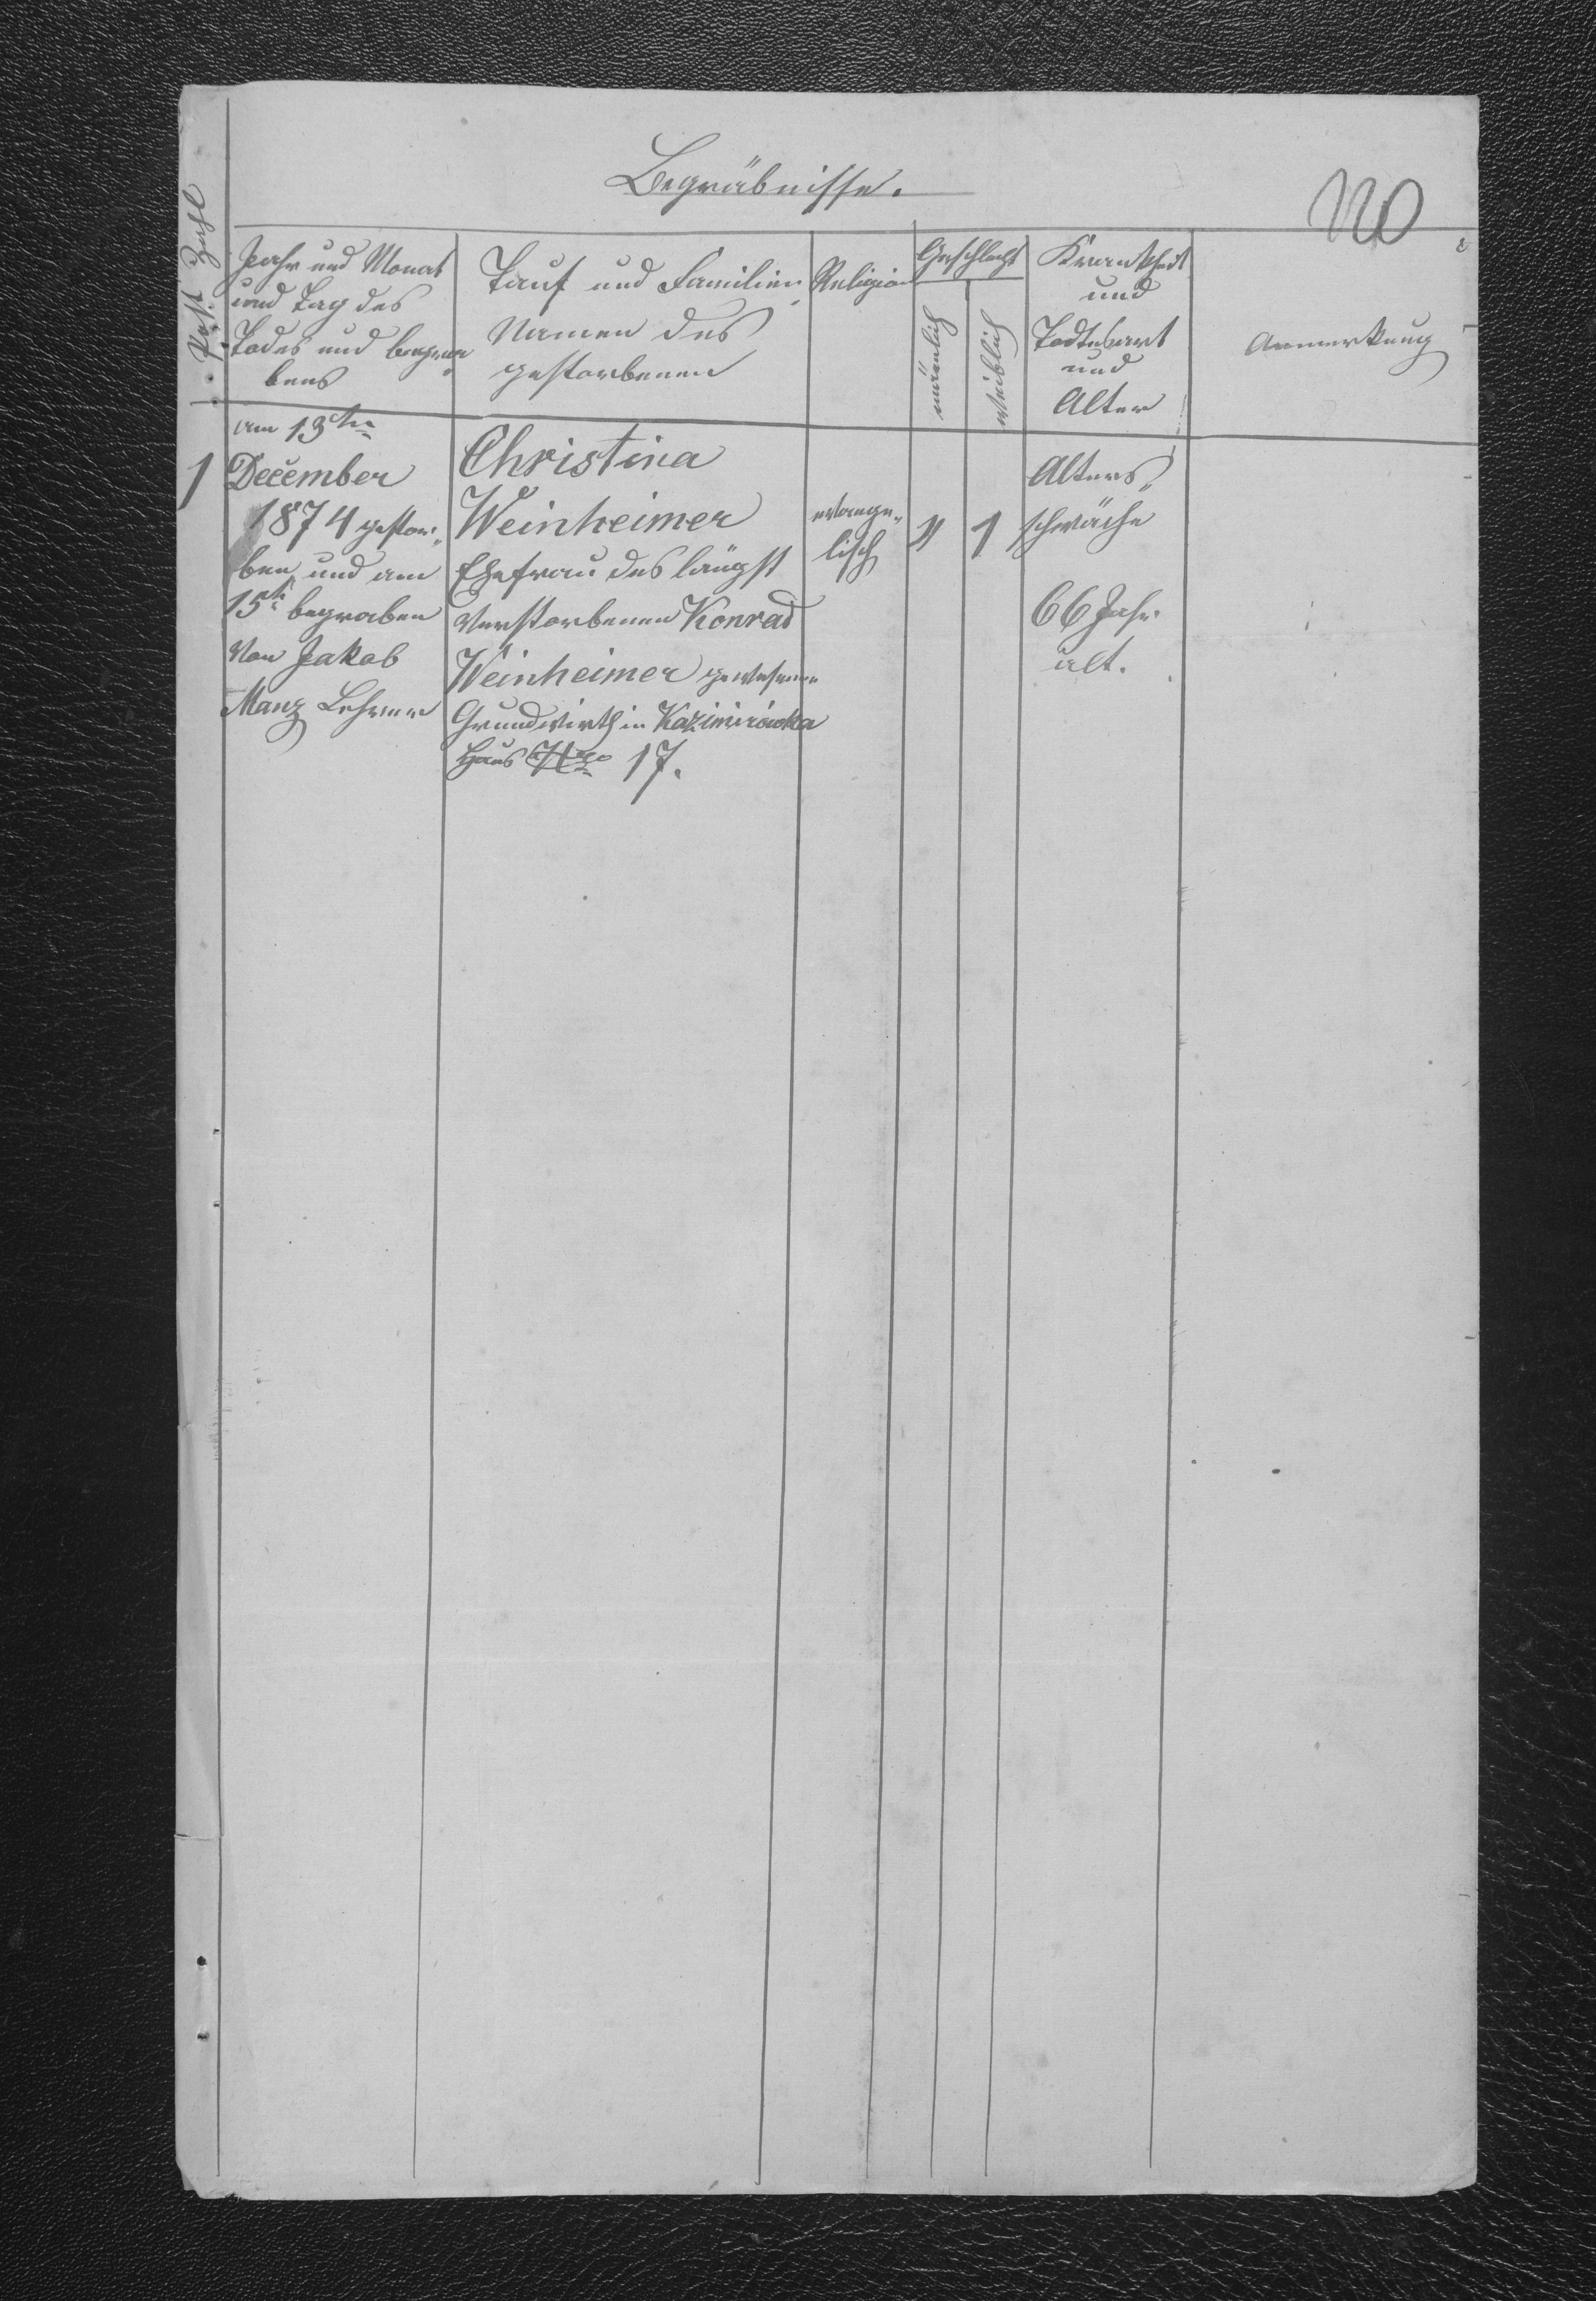 Begräbnisse.
120
Post Zahl
Jahr und Monat
und Tag des
Todes und begra„
bens
Tauf und Familien„
Namen des
gestorbenen
Religion
Geschlecht
mänlich
weiblich
Krankheit
und
Todtesart
und
Alter
Anmerkung
1
am 13ten
December
1874 gestor„
ben und am
15ten begraben
von Jakob
Manz Lehrer
Christina
Weinheimer
Ehefrau des längst
verstorbenen Konrad
Weinheimer gewesenen
Grundwirth in Kazimirówka
Haus Nro 17.
evange„
lisch
„
1
Alters„
schwäche
66 Jahr
alt.